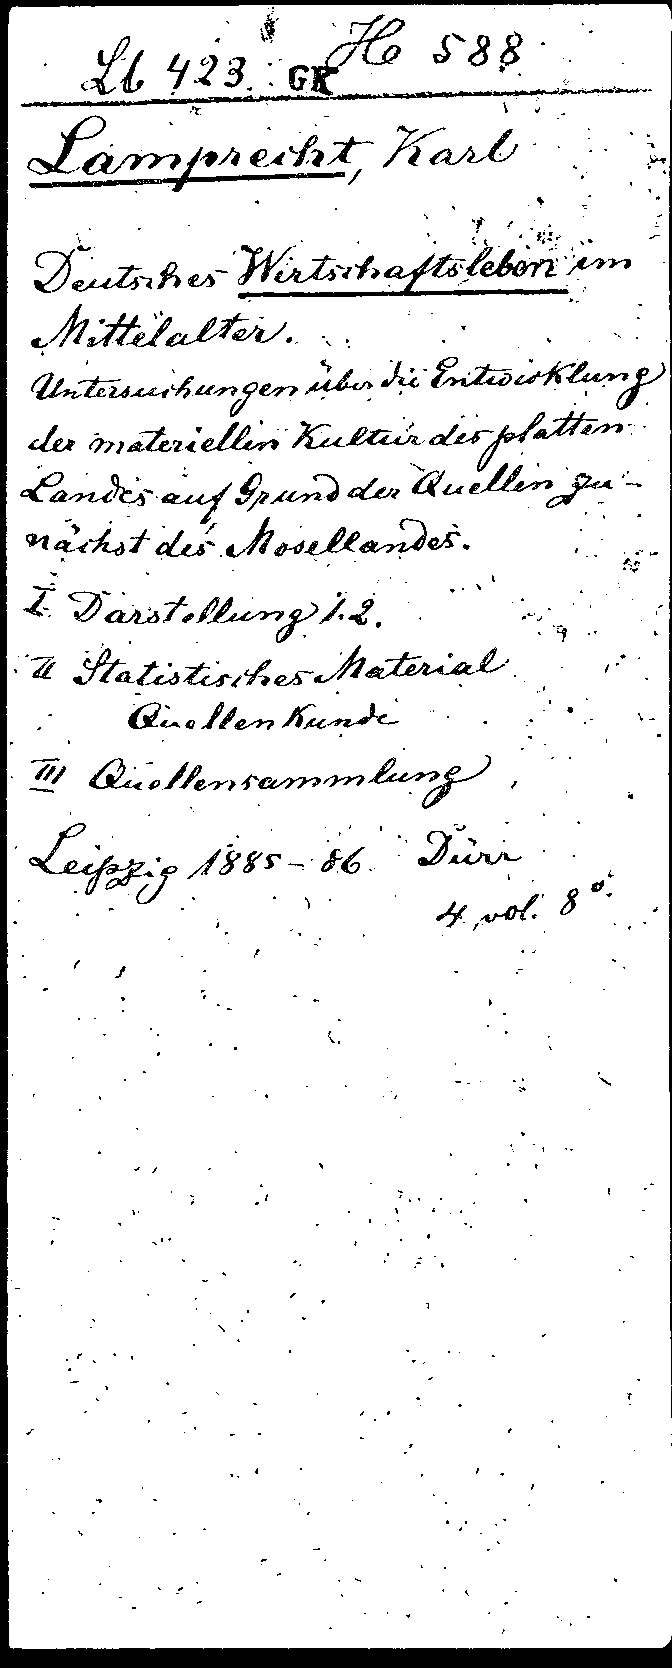 Lb 423. GK He 588
Lamprecht, Karl
Deutsches Wirtschaftsleben im
Mittelalter.
Untersuchungen über die Entwicklung
der materiellen Kultur des platten
Landes auf Grund der Quellen zu-
nächst des Mosellandes.
I Darstellung 1.2.
II Statistisches Material
Quellenkunde
III Quellensammlung
Leipzig 1885-86 Dürr
4 vol. 8°.